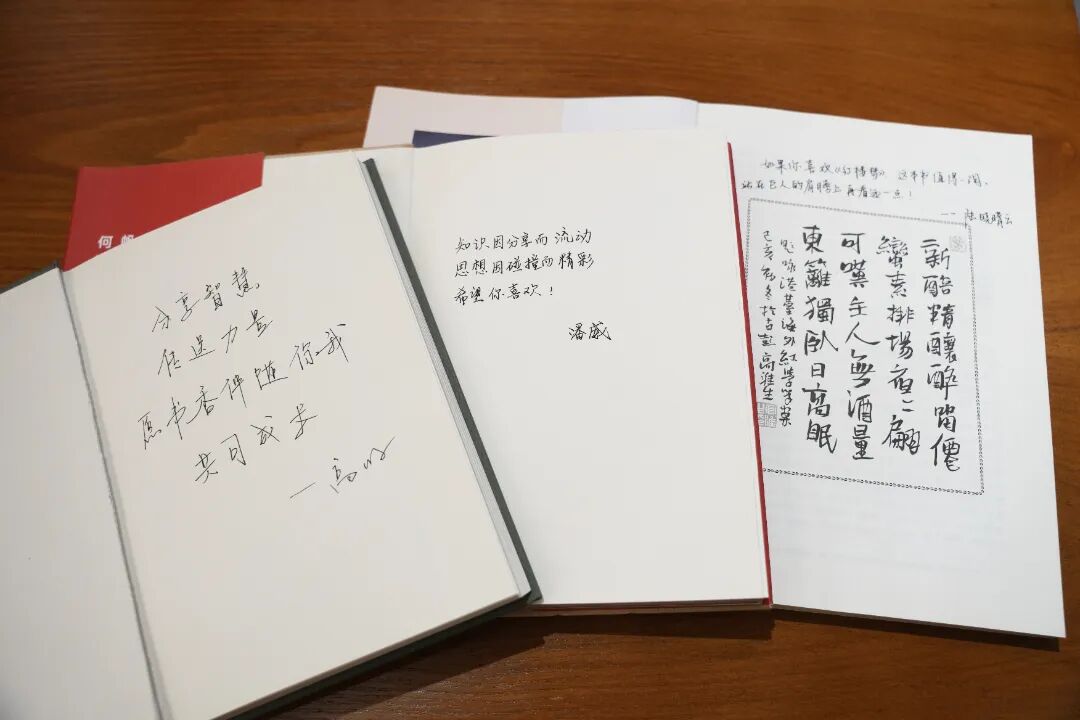 何帆
分享智慧
传递力量
愿书香伴随你我
共同成长
一高
知识因分享而流动
思想因碰撞而精彩
希望你喜欢！
潘威
如果你喜欢《红楼梦》，这本书值得一阅，
站在巨人的肩膀上再看远一点！
新醅精釀醉留僊
蠻素排場夜〻翩
可嘆主人無酒量
東籬獨臥日高眠
題咏港臺海外紅學學案
己亥初冬於古彭高淮生